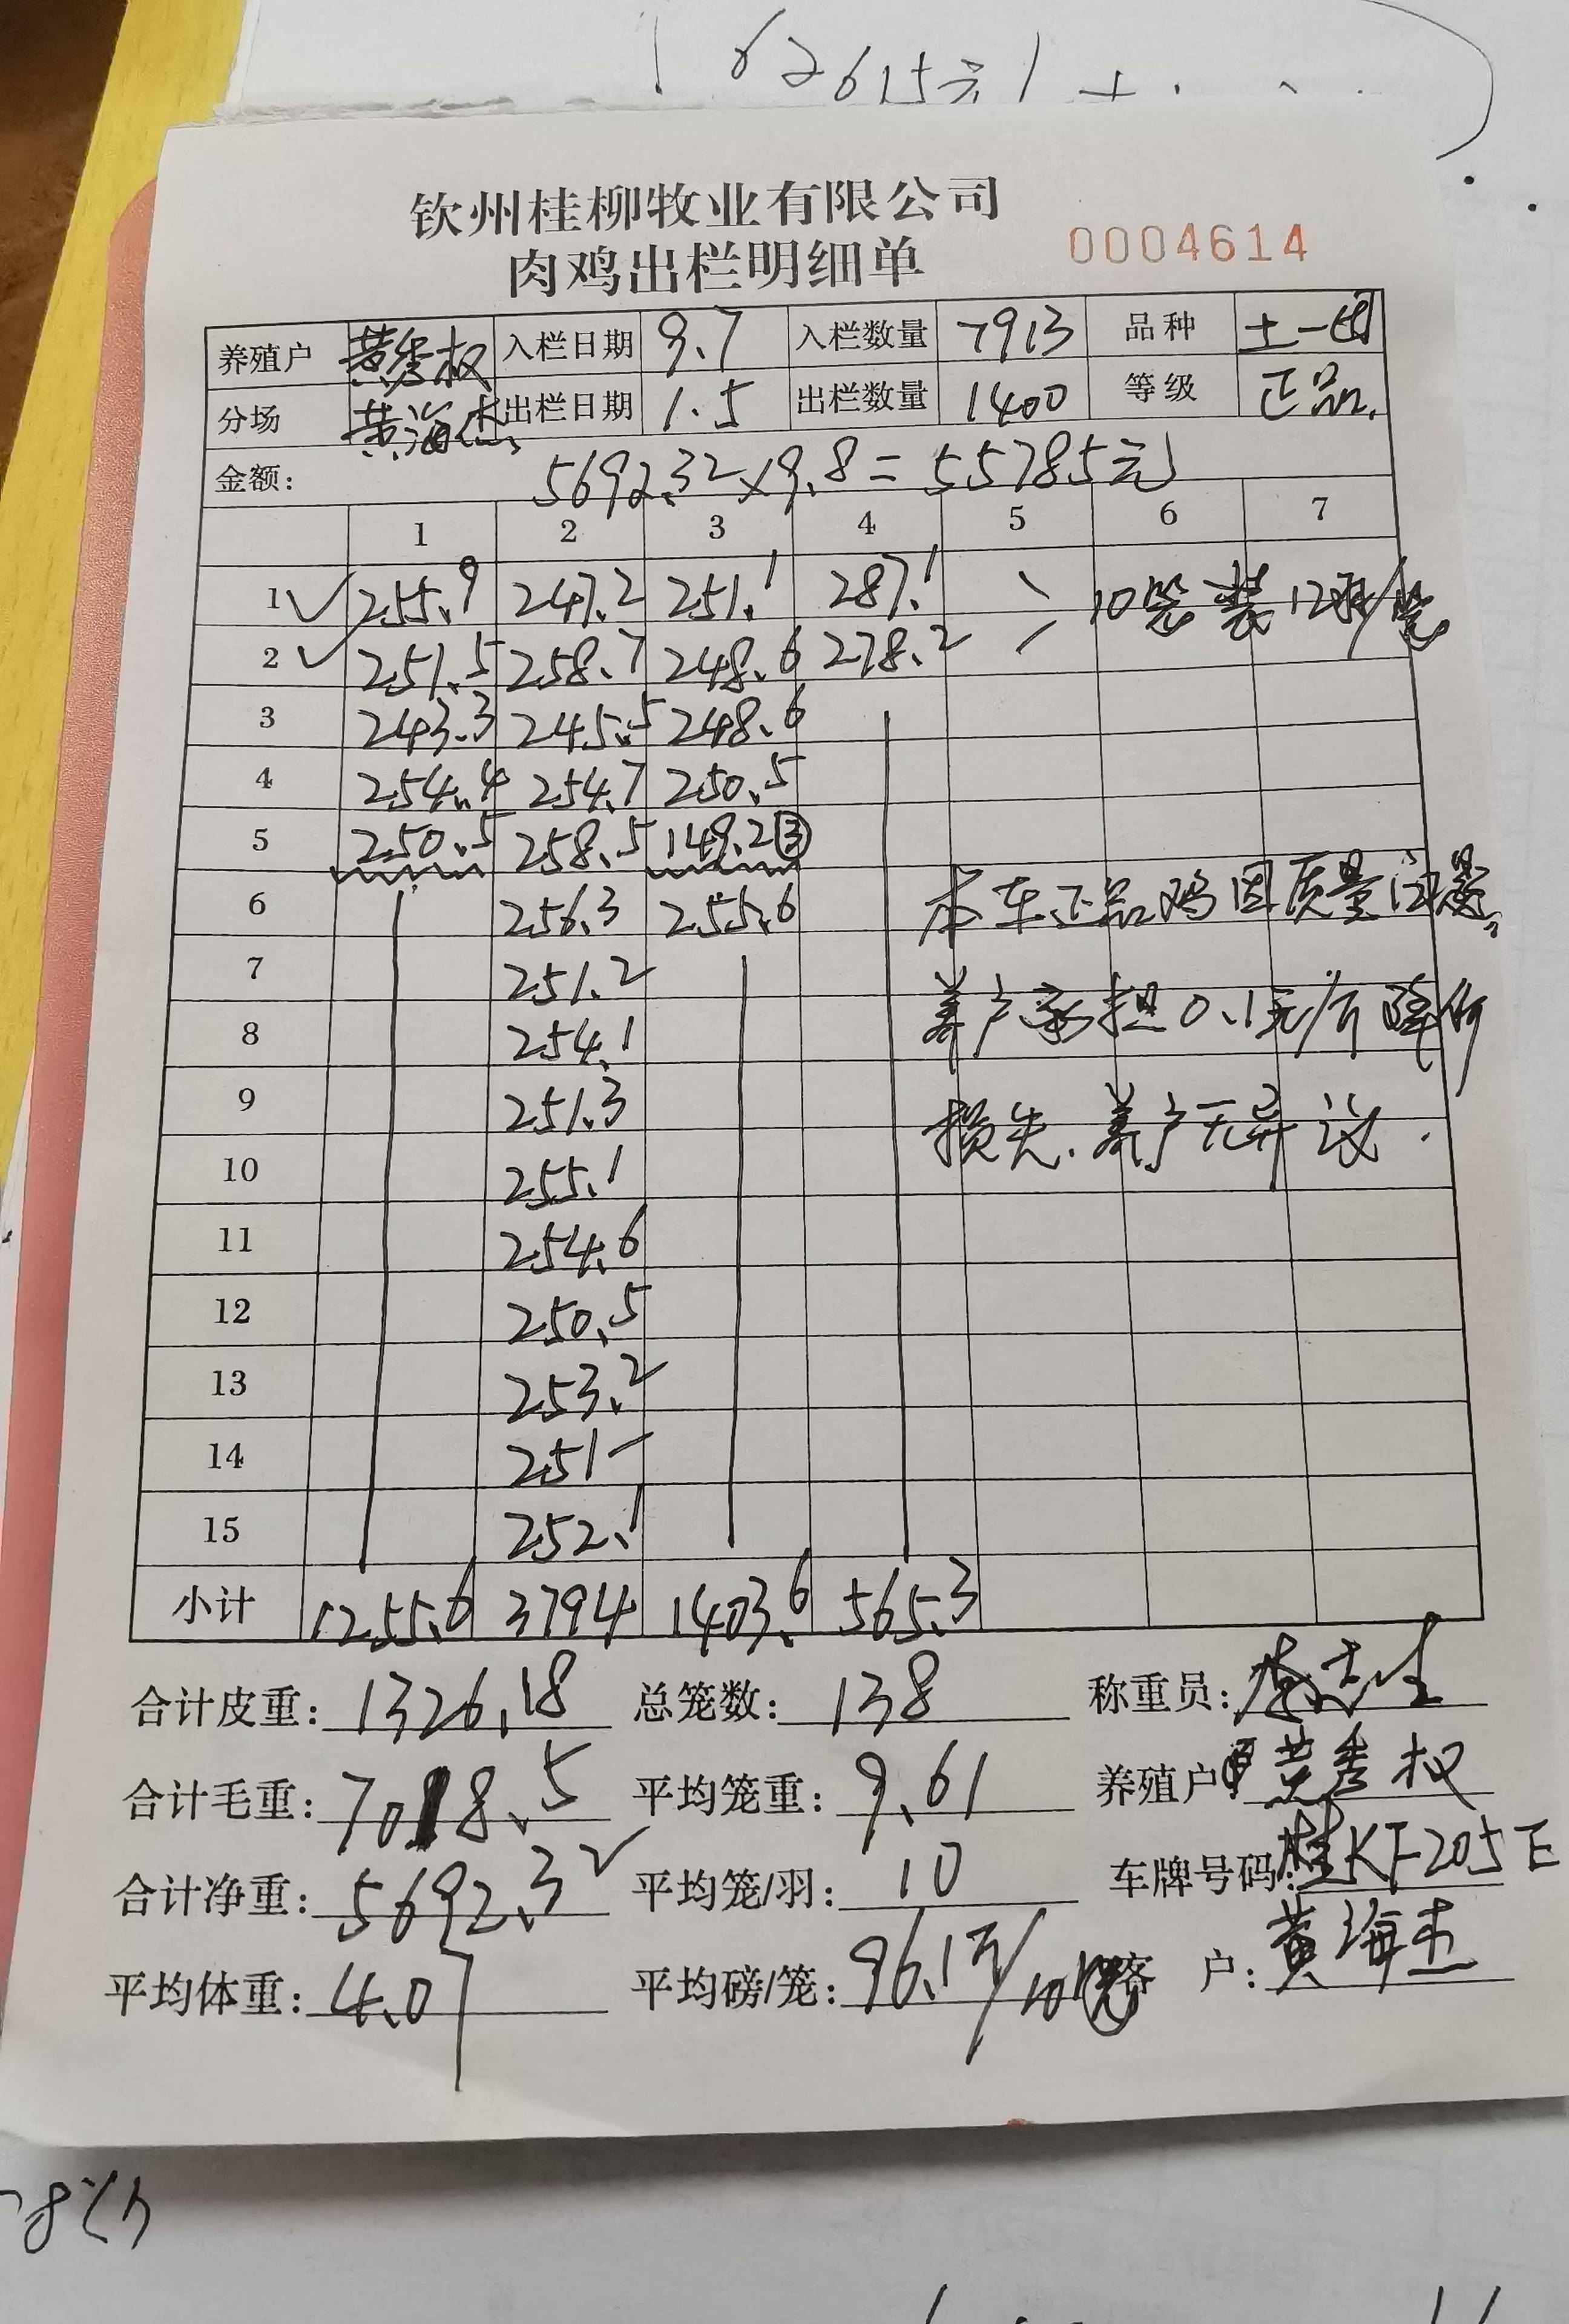 62615元
钦州桂柳牧业有限公司
肉鸡出栏明细单 0004614
养殖户 黄秀权 入栏日期 9.7 入栏数量 7913 品种 土一
分场 黄海杰 出栏日期 1.5 出栏数量 1400 等级 正品.
金额: 5692.32×9.8=55785元
1 2 3 4 5 6 7
1 ✓ 255.9 247.2 251.1 287.1 10笼装12羽/笼
2 ✓ 251.5 258.7 248.6 278.2
3 243.3 245.5 248.6
4 254.4 254.7 250.5
5 250.5 258.5 149.2③
6 256.3 255.6 本车正品鸡因质量问题,
7 251.2
8 254.1 养户承担0.1元/斤降价
9 251.3
10 255.1 损失.养户无异议.
11 254.6
12 250.5
13 253.2
14 251-
15 252.1
小计 1255.6 3794 1403.6 565.3
合计皮重: 1326.18 总笼数: 138 称重员:
合计毛重: 7018.5 平均笼重: 9.61 养殖户 黄秀权
合计净重: 5692.32 平均笼/羽: 10 车牌号码: 桂KF205E
平均体重: 4.07 平均磅/笼: 96.1斤/10笼 客 户: 黄海杰